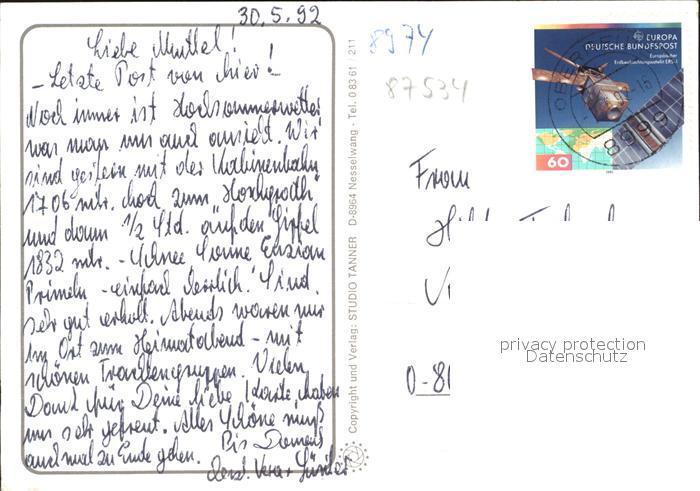 30.5.92
Liebe Muttel!
- Letzte Post von hier!
Noch immer ist Hochsommerwetter
was man uns auch ansieht. Wir
sind gestern mit der Kabinenbahn
1706 mtr. hoch zum Hochgrath
und dann 1/2 Std. auf den Gipfel
1832 mtr. - Schnee Sonne Enzian
Primeln - einfach herrlich. Sind
sehr gut erholt. Abends waren wir
im Ort zum Heimatabend - mit
schönen Trachtengruppen. Vielen
Dank für Deine liebe Karte, haben
uns sehr gefreut. Alles Schöne muß
auch mal zu Ende gehen. Bis
Herzl. Vera + Günter
Copyright und Verlag: STUDIO TANNER D-8964 Nesselwang - Tel. 0 83 61 / 211
8974
87534
EUROPA
DEUTSCHE BUNDESPOST
Europäischer
Erdbeobachtungssatellit ERS-1
60
8999
Frau
D-81
privacy protection
Datenschutz